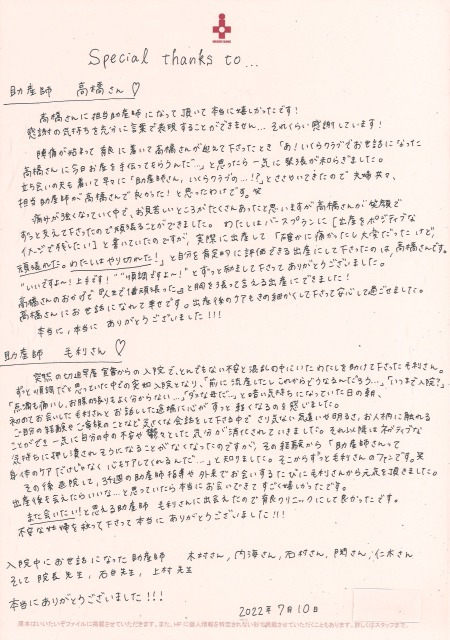 Special thanks to...
助産師 高橋さん♡
高橋さんに担当助産師になって頂いて本当に嬉しかったです!
感謝の気持ちを充分に言葉で表現することができません…それくらい感謝しています!
陣痛が始まって 育良に着いて高橋さんが迎えて下さったとき「あ!いくらクラブでお世話になった
高橋さんに今日お産を手伝ってもらうんだ…」と思ったら一気に緊張が和らぎました。
立ち会いの夫も着いて早々に「助産師さん、いくらクラブの…!?」とささやいてきたので夫婦共々、
担当助産師が高橋さんで良かった!と思ったわけです。笑
痛みが強くなっていく中で、お見苦しいところがたくさんあったと思いますが高橋さんが笑顔で
ずっと支えて下さったので頑張ることができました。わたしはバースプランに[出産をポジティブな
イメージで残したい]と書いていたのですが、実際に出産して「確かに痛かったし大変だったけど、
頑張れた。わたしはやり切れた!」と自分を肯定的に評価できる出産にして下さったのは、高橋さんです。
"いいですよ〜!上手です!""順調ですよ〜!"とずっと励まして下さってありがとうございました。
高橋さんのおかげで「人生で1番頑張った」と胸を張って言える出産にできました!
高橋さんにお世話になれて幸せです。出産後のケアもきめ細かくして下さって安心して過ごせました。
本当に、本当に ありがとうございました!!!
助産師 毛利さん♡
突然の切迫早産宣告からの入院で、とんでもない不安と混乱の中にいたわたしを助けて下さった毛利さん。
ずっと順調だと思っていた中での突如入院となり、「前に流産したしこれからどうなるんだろう…」「いつまで入院?」
「点滴も痛いし、お腹の張りもよく分からない…」「ダメな母だ…」と暗い気持ちになっていた日の朝、
初めてお会いした毛利さんとお話しした途端に心がすっと軽くなるのを感じました。
ご自分の経験やご家族のことなど広くな会話をして下さる中で さり気ない気遣いや明るさ、お人柄に触れる
ことができ一気に自分の中の不安や鬱々とした気分が消化されていきました。それ以降はネガティブな
気持ちに押し潰されそうになることがなくなったのですが、その経験から「助産師さんって
身体のケアだけじゃなく心もケアしてくれるんだ…」と知りました。そこからずっと毛利さんのファンです。笑
その後退院して、34週の助産師指導や外来でお会いするたびに毛利さんから元気を頂きました。
出産後も会えたらいいな…と思っていたら本当にお会いできてすごく嬉しかったです。
また会いたい!と思える助産師 毛利さんに出会えたので育良クリニックにして良かったです。
不安な妊婦を救って下さって本当に ありがとうございました!!!
入院中にお世話になった助産師 木村さん, 内海さん, 石村さん, 関さん, 仁木さん
そして 院長先生, 石田先生, 上村先生
本当にありがとうございました!!!
2022年7月10日
原本はいいたいぞファイルに掲載させていただきます。また、HPに個人情報を特定されない形で掲載させていただくこともあります。詳しくはスタッフまで。